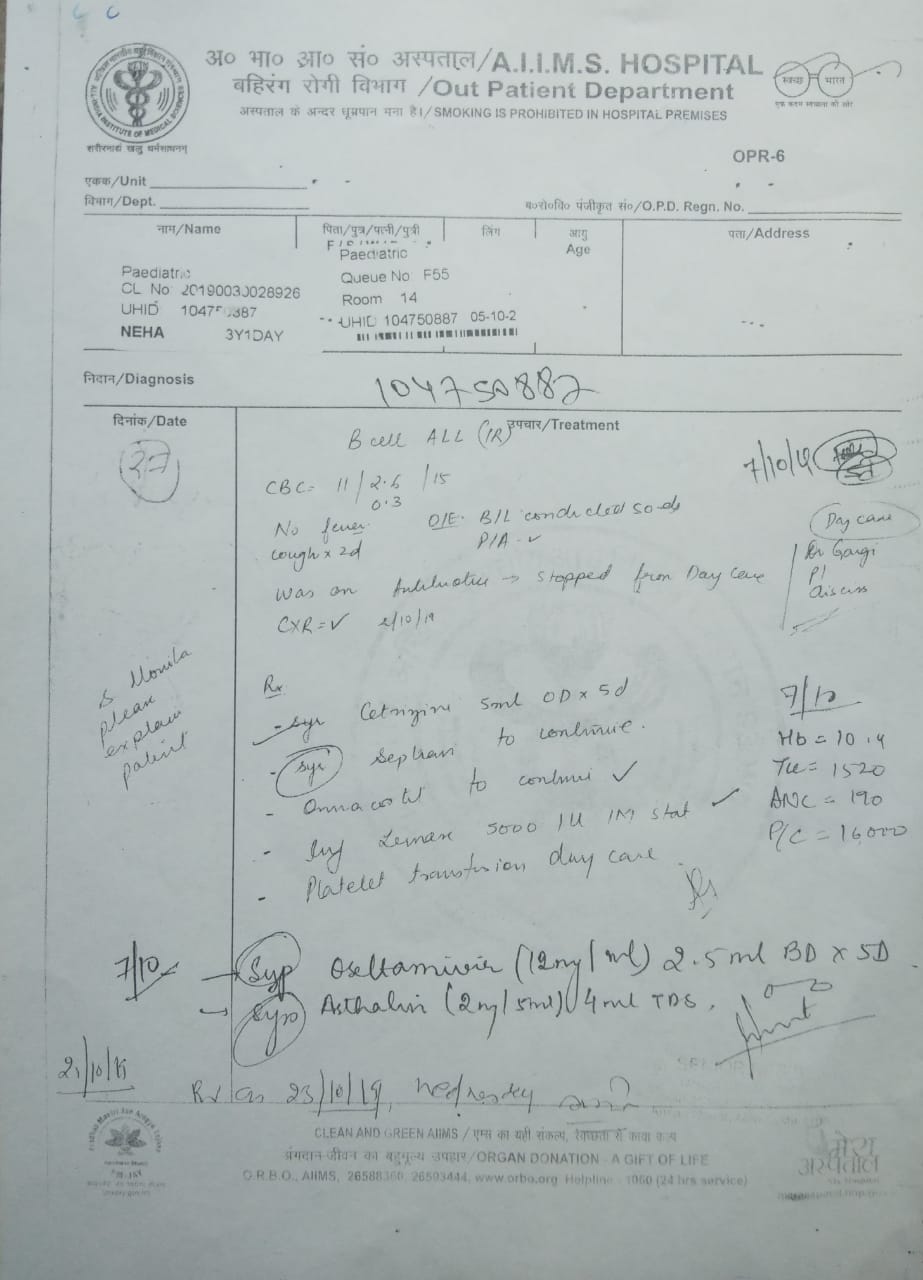 अ० भा० आ० सं० अस्पताल/A.I.I.M.S. HOSPITAL
बहिरंग रोगी विभाग /Out Patient Department
अस्पताल के अन्दर धूम्रपान मना है।/SMOKING IS PROHIBITED IN HOSPITAL PREMISES
ALL INDIA INSTITUTE OF MEDICAL SCIENCES
शरीरमाद्यं खलु धर्मसाधनम्
स्वच्छ भारत
एक कदम स्वच्छता की ओर
OPR-6
एकक/Unit
विभाग/Dept.
ब०रो०वि० पंजीकृत सं०/O.P.D. Regn. No.
नाम/Name
पिता/पुत्र/पत्नी/पुत्री
लिंग
आयु
Age
पता/Address
Paediatric
CL No 20190030028926
UHID 104750887
NEHA 3Y1DAY
Paediatric
Queue No F55
Room 14
UHID 104750887 05-10-2
निदान/Diagnosis
104750887
दिनांक/Date
उपचार/Treatment
27
B cell ALL (IR)
7/10/19
CBC = 11 / 2.6 / 15
0.3
No fever
O/E B/L conducted sounds
cough x 2d
P/A - ✓
Day care
Dr Gargi
Pl
discuss
Was on Antibiotics → stopped from Day Care
CXR = ✓ 2/10/19
S Monila
please
explain
patient
Rx
- Syr Cetrizine 5ml OD x 5d
- Syr Septran to continue.
- to continue ✓
- Inj 5000 IU IM stat ✓
- Platelet transfusion day care
7/10
Hb = 10.4
TLC = 1520
ANC = 190
P/C = 16,000
7/10
→ Syp Oseltamivir (12mg/ml) 2.5 ml BD x 5D
→ Syp Asthalin (2mg/5ml) 4ml TDS.
21/10/19
Rv on 23/10/19, Wednesday
CLEAN AND GREEN AIIMS / एम्स का यही संकल्प, स्वच्छता से काया कल्प
अंगदान-जीवन का बहुमूल्य उपहार/ORGAN DONATION - A GIFT OF LIFE
O.R.B.O., AIIMS, 26588360, 26593444, www.orbo.org Helpline - 1060 (24 hrs service)
मेरा
अस्पताल